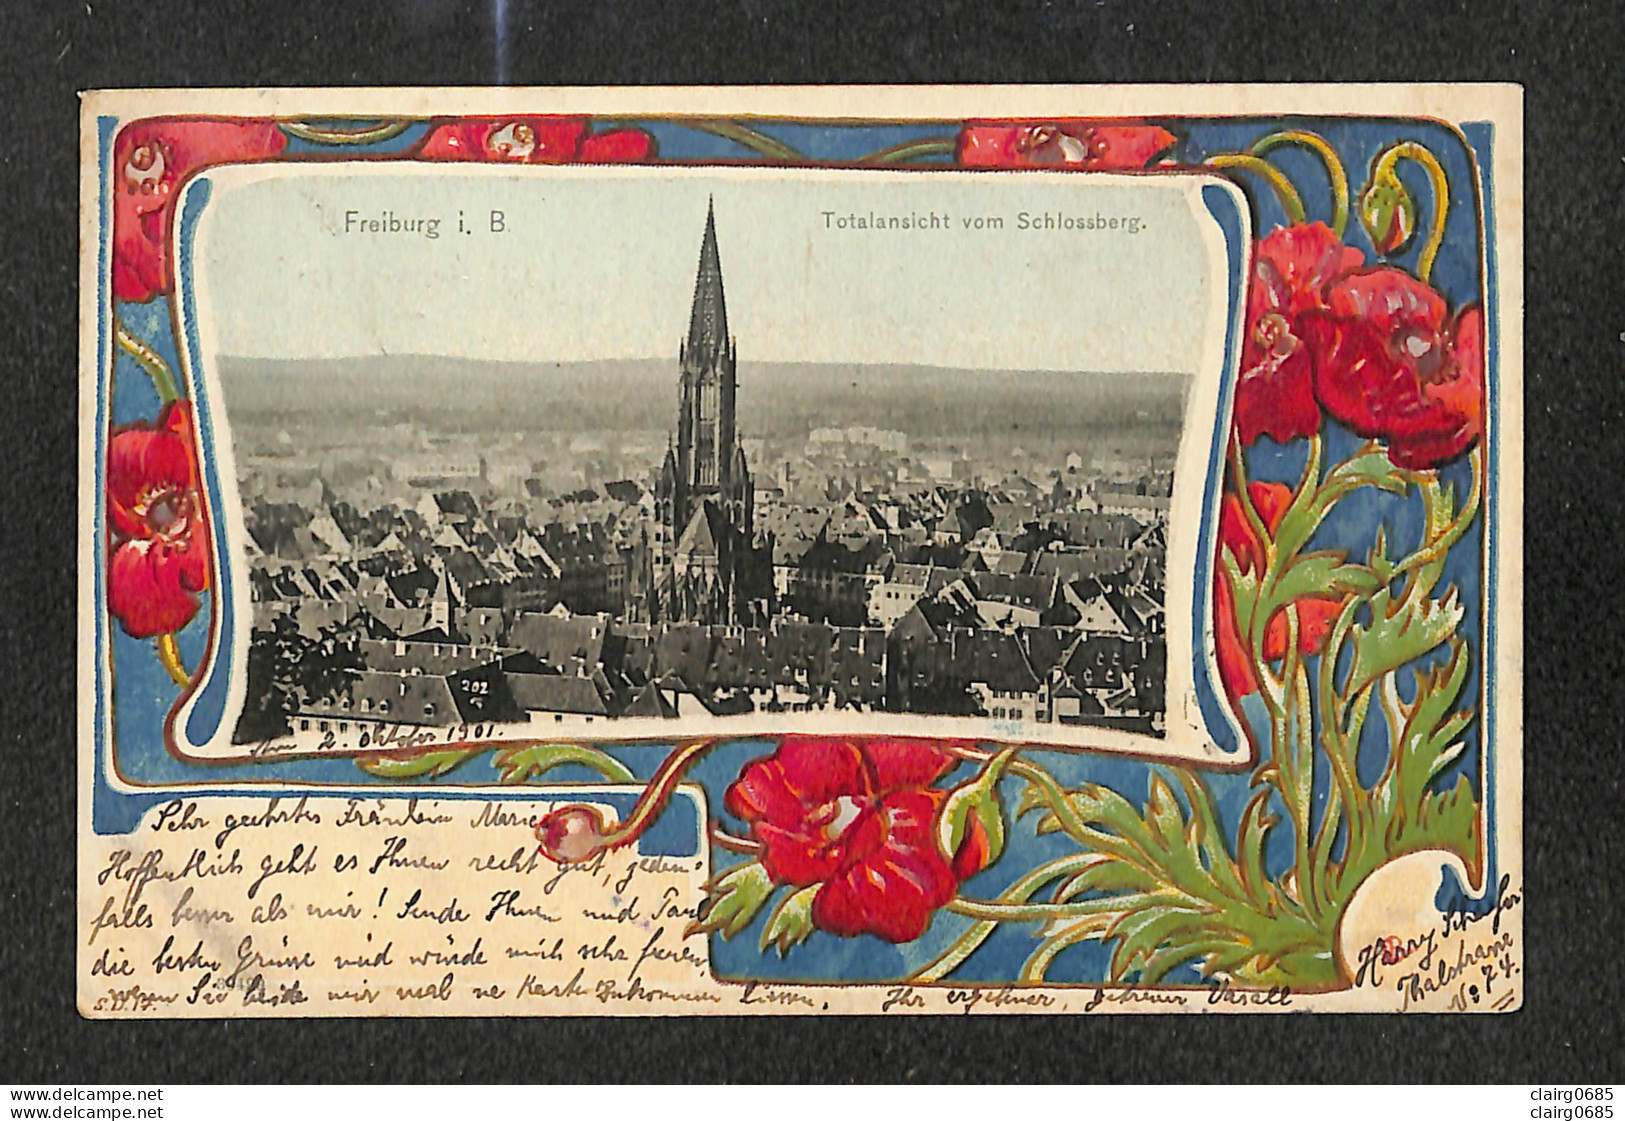 Freiburg i. B.
Totalansicht vom Schlossberg.
202
2. Oktober 1901.
Sehr geehrtes Fräulein Marie!
Hoffentlich geht es Ihnen recht gut, jeden-
falls besser als mir! Sende Ihnen und Paul
die besten Grüsse und würde mich sehr freuen
wenn Sie beide mir mal ne Karte zukommen liessen.
Ihr ergebener, getreuer Vasall
Harry
Thalstrasse
No 74.
clairg0685
clairg0685
www.delcampe.net
www.delcampe.net